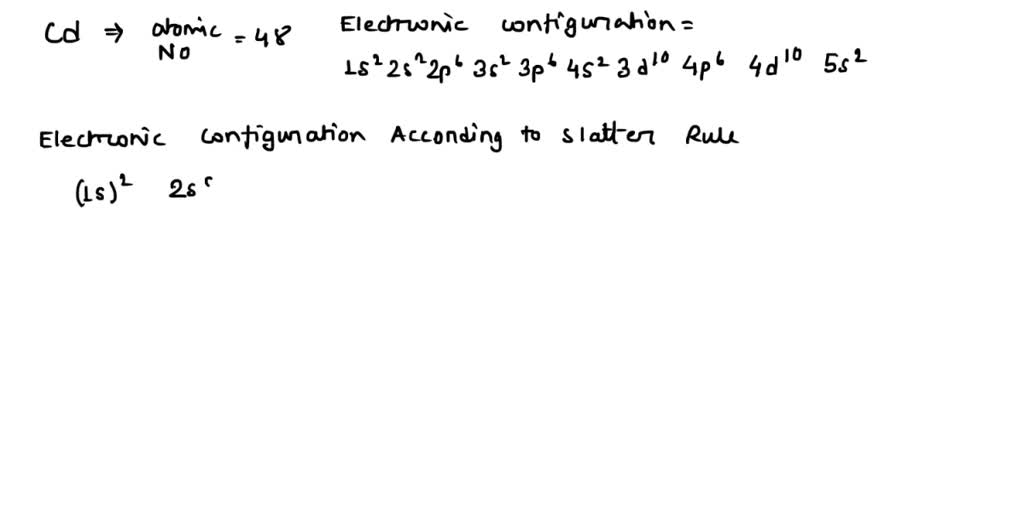 Cd ⇒ atomic No = 48 Electronic configuration =
1s² 2s² 2p⁶ 3s² 3p⁶ 4s² 3d¹⁰ 4p⁶ 4d¹⁰ 5s²
Electronic configuration According to slatter Rule
(1s)² 2s